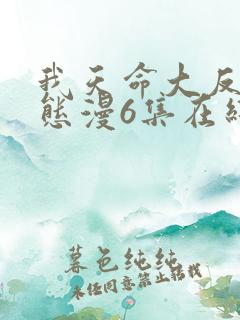 我天命大反
态漫6集在线
暮色纯纯
未经同意禁止转载